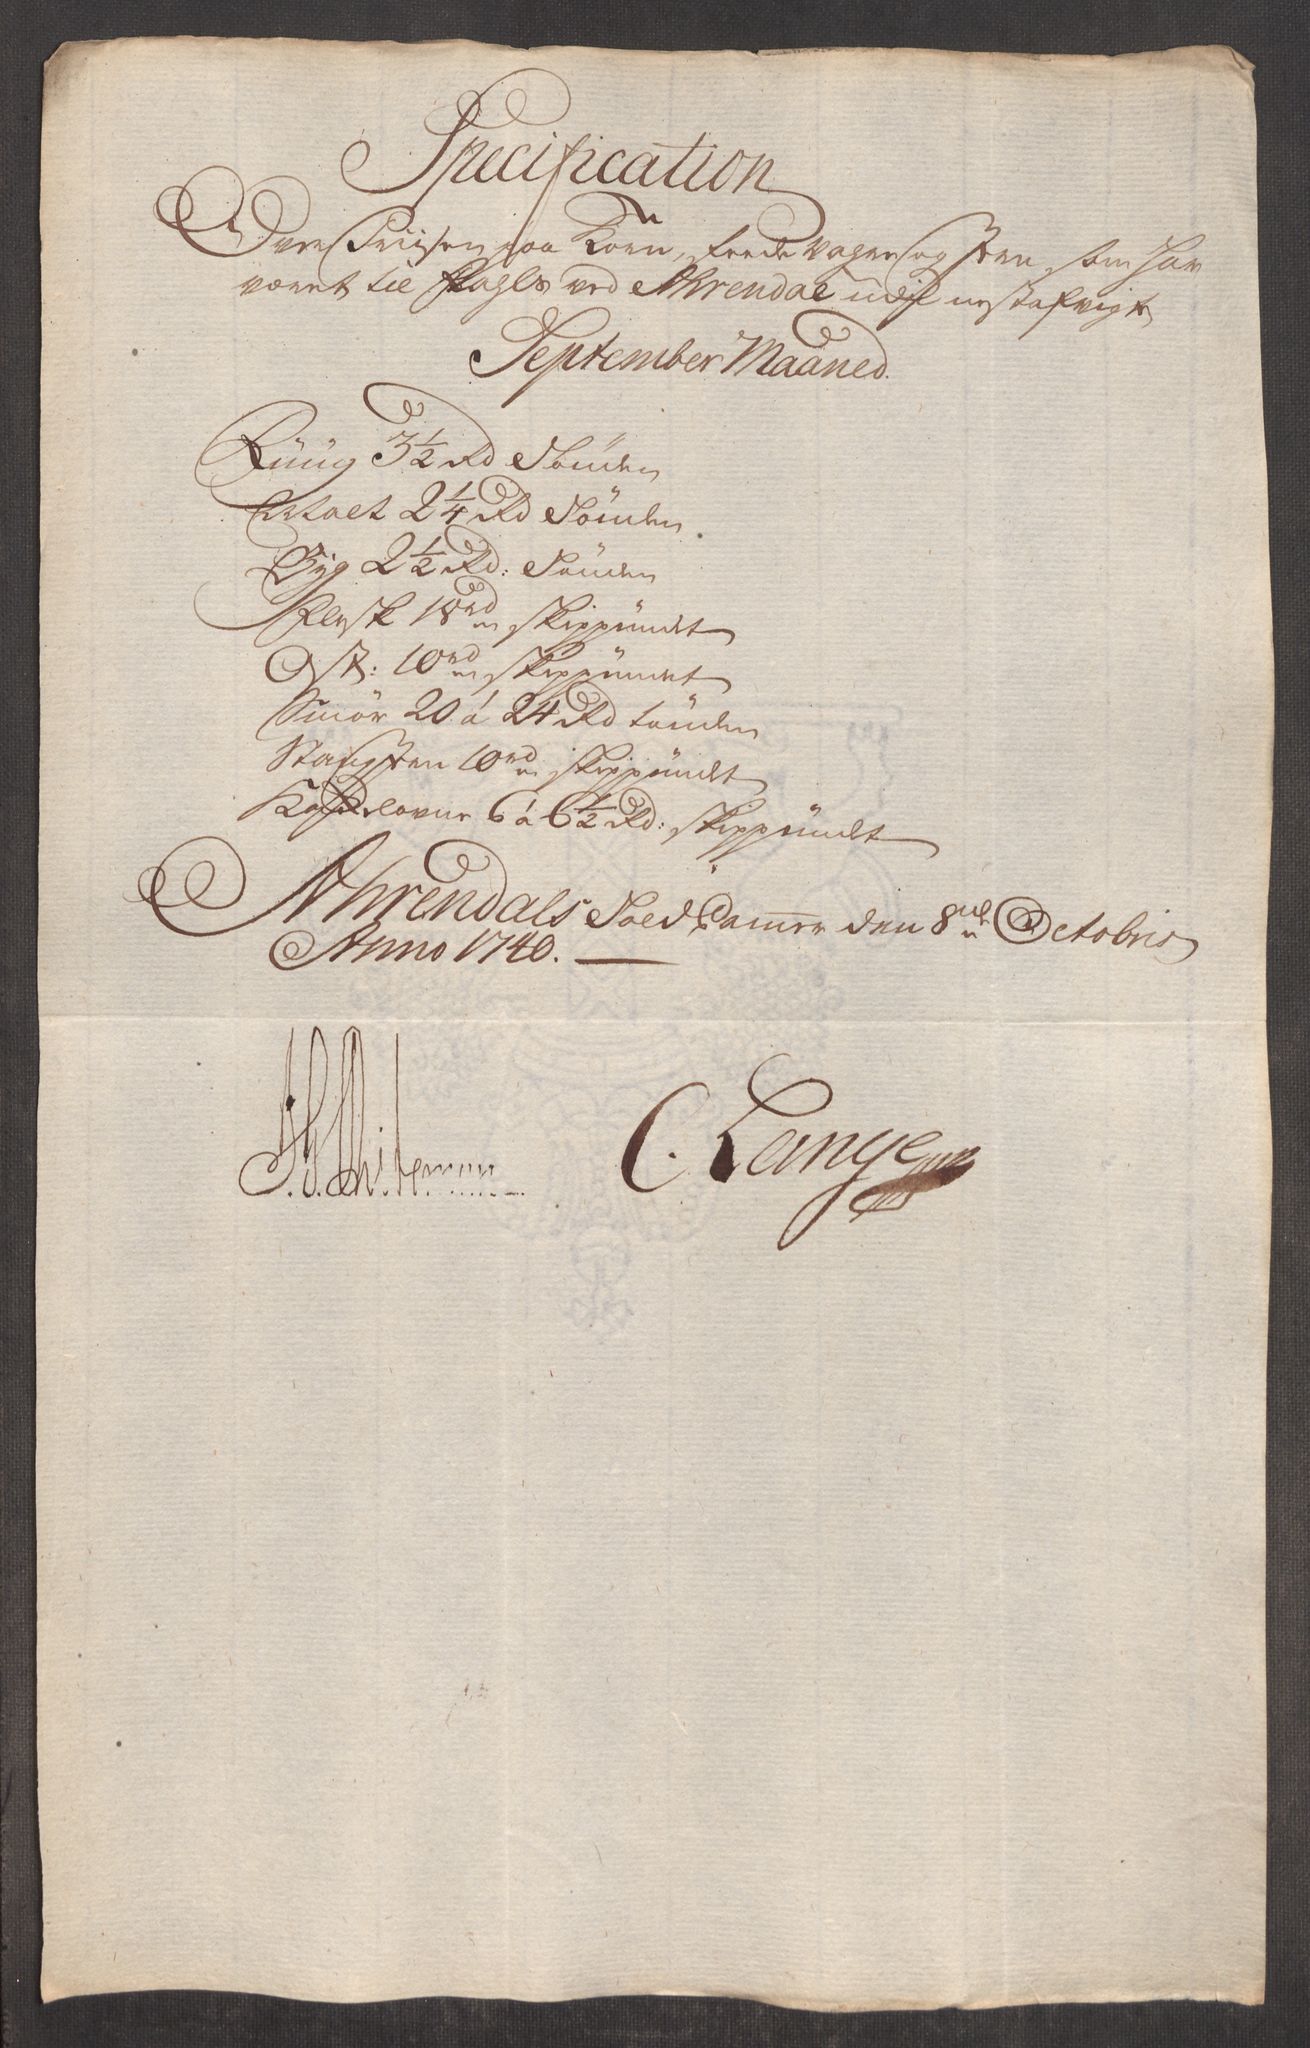 Specification
Over Priisen paa Korn, feede Vahre og Iern, som har
været til Kiøbs ved Ahrendal udj nestafvigte
September Maaned.
Rüüg 3½ Rd Tönden
Malt 2¼ Rd Tönden
Byg 2½ Rd: Tönden
Flesk 18 rd skippündet
Ost: 10 rd skippündet
Smör 20 á 24 Rd tönden
Stangiern 10 rd skippündt
6 á 6½ Rd: skippündt
Ahrendals Told Cammer den 8de Octobris
Anno 1740.
C. Lange